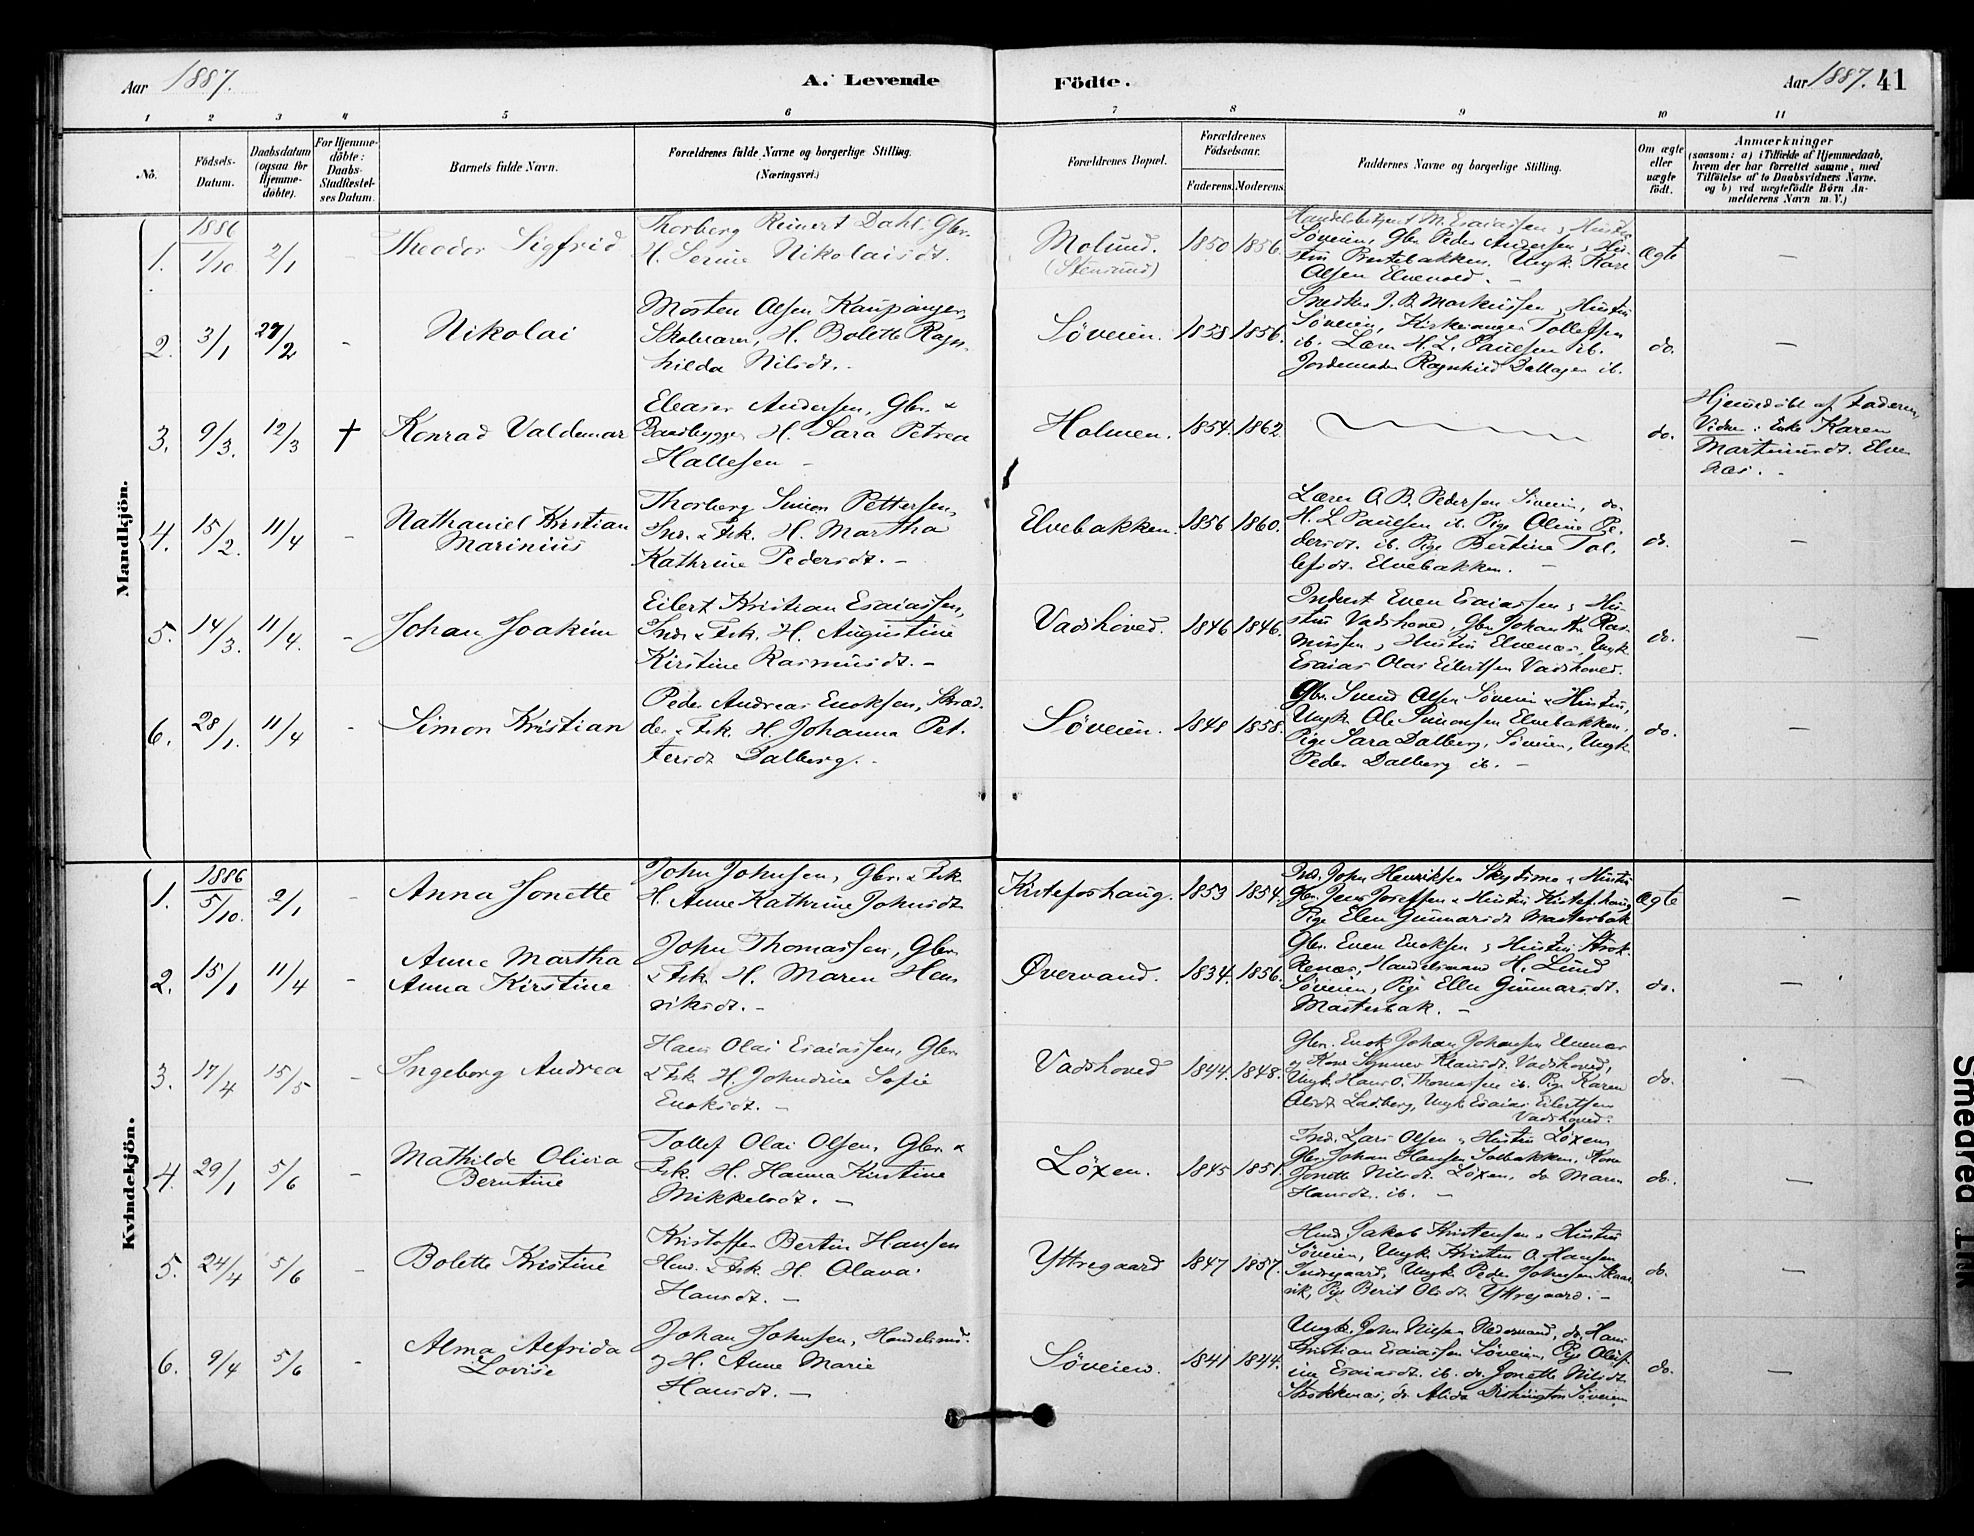 Aar 1887. A. Levende Födte. Aar 1887. 41
1 2 3 4 5 6 7 8 9 10 11
No.
Födsels-Datum.
Daabsdatum (ogsaa for Hjemme-döbte).
For Hjemme-döbte: Daabs-Stadfæstel-ses Datum.
Barnets fulde Navn.
Forældrenes fulde Navne og borgerlige Stilling.
(Næringsvei.)
Forældrenes Bopæl.
Forældrenes Födselsaar.
Faderens. Moderens.
Faddernes Navne og borgerlige Stilling.
Om ægte eller uægte födt.
Anmærkninger
(saasom: a) i Tilfælde af Hjemmedaab,
hvem der har forrettet samme, med
Tilföielse af to Daabsvidners Navne.
og b) ved uægtefödte Börn An-
melderens Navn m. V.)
Mandkjön.
1. 1886 1/10 2/1 - Theodor Sigfrid
Thorberg Reinert Dahl, Gbr.
H. Serine Nikolaisdt.
Molund. (Stensund) 1850 1856.
Handelsbetjent M. Esaiassen, Hustru
Søveien, Gbr. Peder Andersen, Hu-
stru Prestebakken, Ungk. Karl
Olsen Elvevold. -
Ægte -
2. 3/1 27/2 - Nikolai
Morten Olsen Kaupanger,
Skolelærer, H. Bolette Ragn-
hilda Nilsdt.
Søveien. 1838 1856.
Snedker J. B. Markussen, Hustru
Søveien, Kirkesanger Tollefsen
ib. Lærer H. L. Paulsen ib.
Jordemoder Ragnhild Dallager ib.
do. -
3. 9/3. 12/3 † Konrad Valdemar
Eleaser Andersen, Gbr. &
Baadbygger H. Sara Petrea
Hallesen -
Holmen. 1854. 1862
do.
Hjemdöbt af Faderen,
Vidner: Enke Karen
Martinusdt. Elve-
næs. -
4. 15/2. 11/4 - Nathaniel Kristian
Marinius
Thorberg Simon Pettersen,
Ind. & Fsk. H. Martha
Kathrine Pedersdt. -
Elvebakken. 1856 1860.
Lærer O. B. Pedersen Søveien, do
H. L. Paulsen ib. Pige Oline Pe-
dersdt. ib. Pige Bertine Tol-
lefsdt. Elvebakken. -
do. -
5. 14/3. 11/4. - Johan Joakim
Eilert Kristian Esaiassen,
Inds. & Fsk. H. Augustine
Kirstine Rasmusdt. -
Vadshoved. 1846 1846.
Inderst Even Esaiassen, Hu-
stru Vadshoved, Gbr. Johan Ras-
mussen, Hustru Elvenæs, Ungk.
Esaias Olai Eilertsen Vadshoved.
do. -
6. 28/1. 11/4 - Simon Kristian
Peder Andreas Enoksen, Skræd-
der & Fsk. H. Johanna Pet-
tersdt Dalberg. -
Søveien. 1848 1858.
Gbr. Svend Olsen Søveien & Hustru,
Ungk. Ole Simonsen Elvebakken,
Pige Sara Dalberg, Søveien, Ungk.
Peder Dalberg ib. -
do. -
Kvindekjön.
1. 1886 5/10. 2/1 - Anna Jonette
John Johnsen, Gbr. & Fsk.
H. Anne Kathrine Johnsdt.
Kisteforshaug. 1853 1854.
Ind. John Henriksen Skydsmo & Hustru
Gbr. Jens Josefsen & Hustru Kistef.haug
Pige Elen Gunnarsdt. Masterbak
Ægte -
2. 15/1 11/4 - Anne Martha
Anna Kirstine
John Thomassen, Gbr.
& Fsk. H. Maren Hen-
riksdt. -
Øvervand. 1834. 1856.
Gbr. Even Enoksen, Hustru Strok-
kenæs, Handelsmand H. Lund
Søveien, Pige Ellen Gunnarsdt.
Masterbak. -
do. -
3. 17/4 15/5 - Ingeborg Andrea
Hans Olai Esaiassen, Gbr.
& Fsk. H. Johndine Sofie
Enoksdt. -
Vadshoved 1844. 1848.
Gbr. Enok Johan Johansen Elvenæs
& Kone Synnev Klausdt. Vadshoved,
Ungk. Hans O. Thomassen ib. Pige Karen
Olsdt Ladberg, Ungk Esaias Eilertsen
Vadshoved.
do. -
4. 29/1 5/6 - Mathilde Olivia
Berntine
Tollef Olai Olsen, Gbr. &
Fsk. H. Hanna Kirstine
Mikkelsdt. -
Løxen. 1845 1851
Ind. Lars Olsen, Hustru Løxen,
Gbr. Johan Hansen Solbakken, Kone
Jonette Nilsdt. Løxen, do Maren
Hansdt. ib. -
do. -
5. 24/4 5/6 - Bolette Kristine
Kristoffer Bertin Hansen
Hmd. & Fsk. H. Olava
Hansdt. -
Yttregaard 1847 1857.
Hmd. Jakob Kristensen, Hustru
Søveien, Ungk. Kristen O. Hansen
Indregaard, Ungk Peder Johnsen Skaar-
vik, Pige Berit Olsdt. Yttregaard. -
do. -
6. 9/4 5/6 - Alma Alfrida
Lovise
Johan Johnsen, Handelsmd.
& H. Anne Marie
Hansdt. -
Søveien. 1841 1844.
Ungk. John Nilsen Nedervand, do. Hans
Kristian Esaiassen Søveien, Pige
Esaiasdt. ib. do. Jonette Nilsdt.
Strokkenæs, do. Alida Dishington Søveien
do. -
Smedred Ink